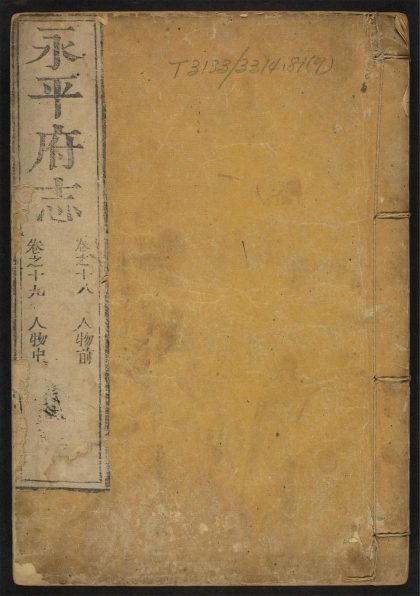 永平府志
卷之十八 人物前
卷之十九 人物中
T3133/3314.81(9)